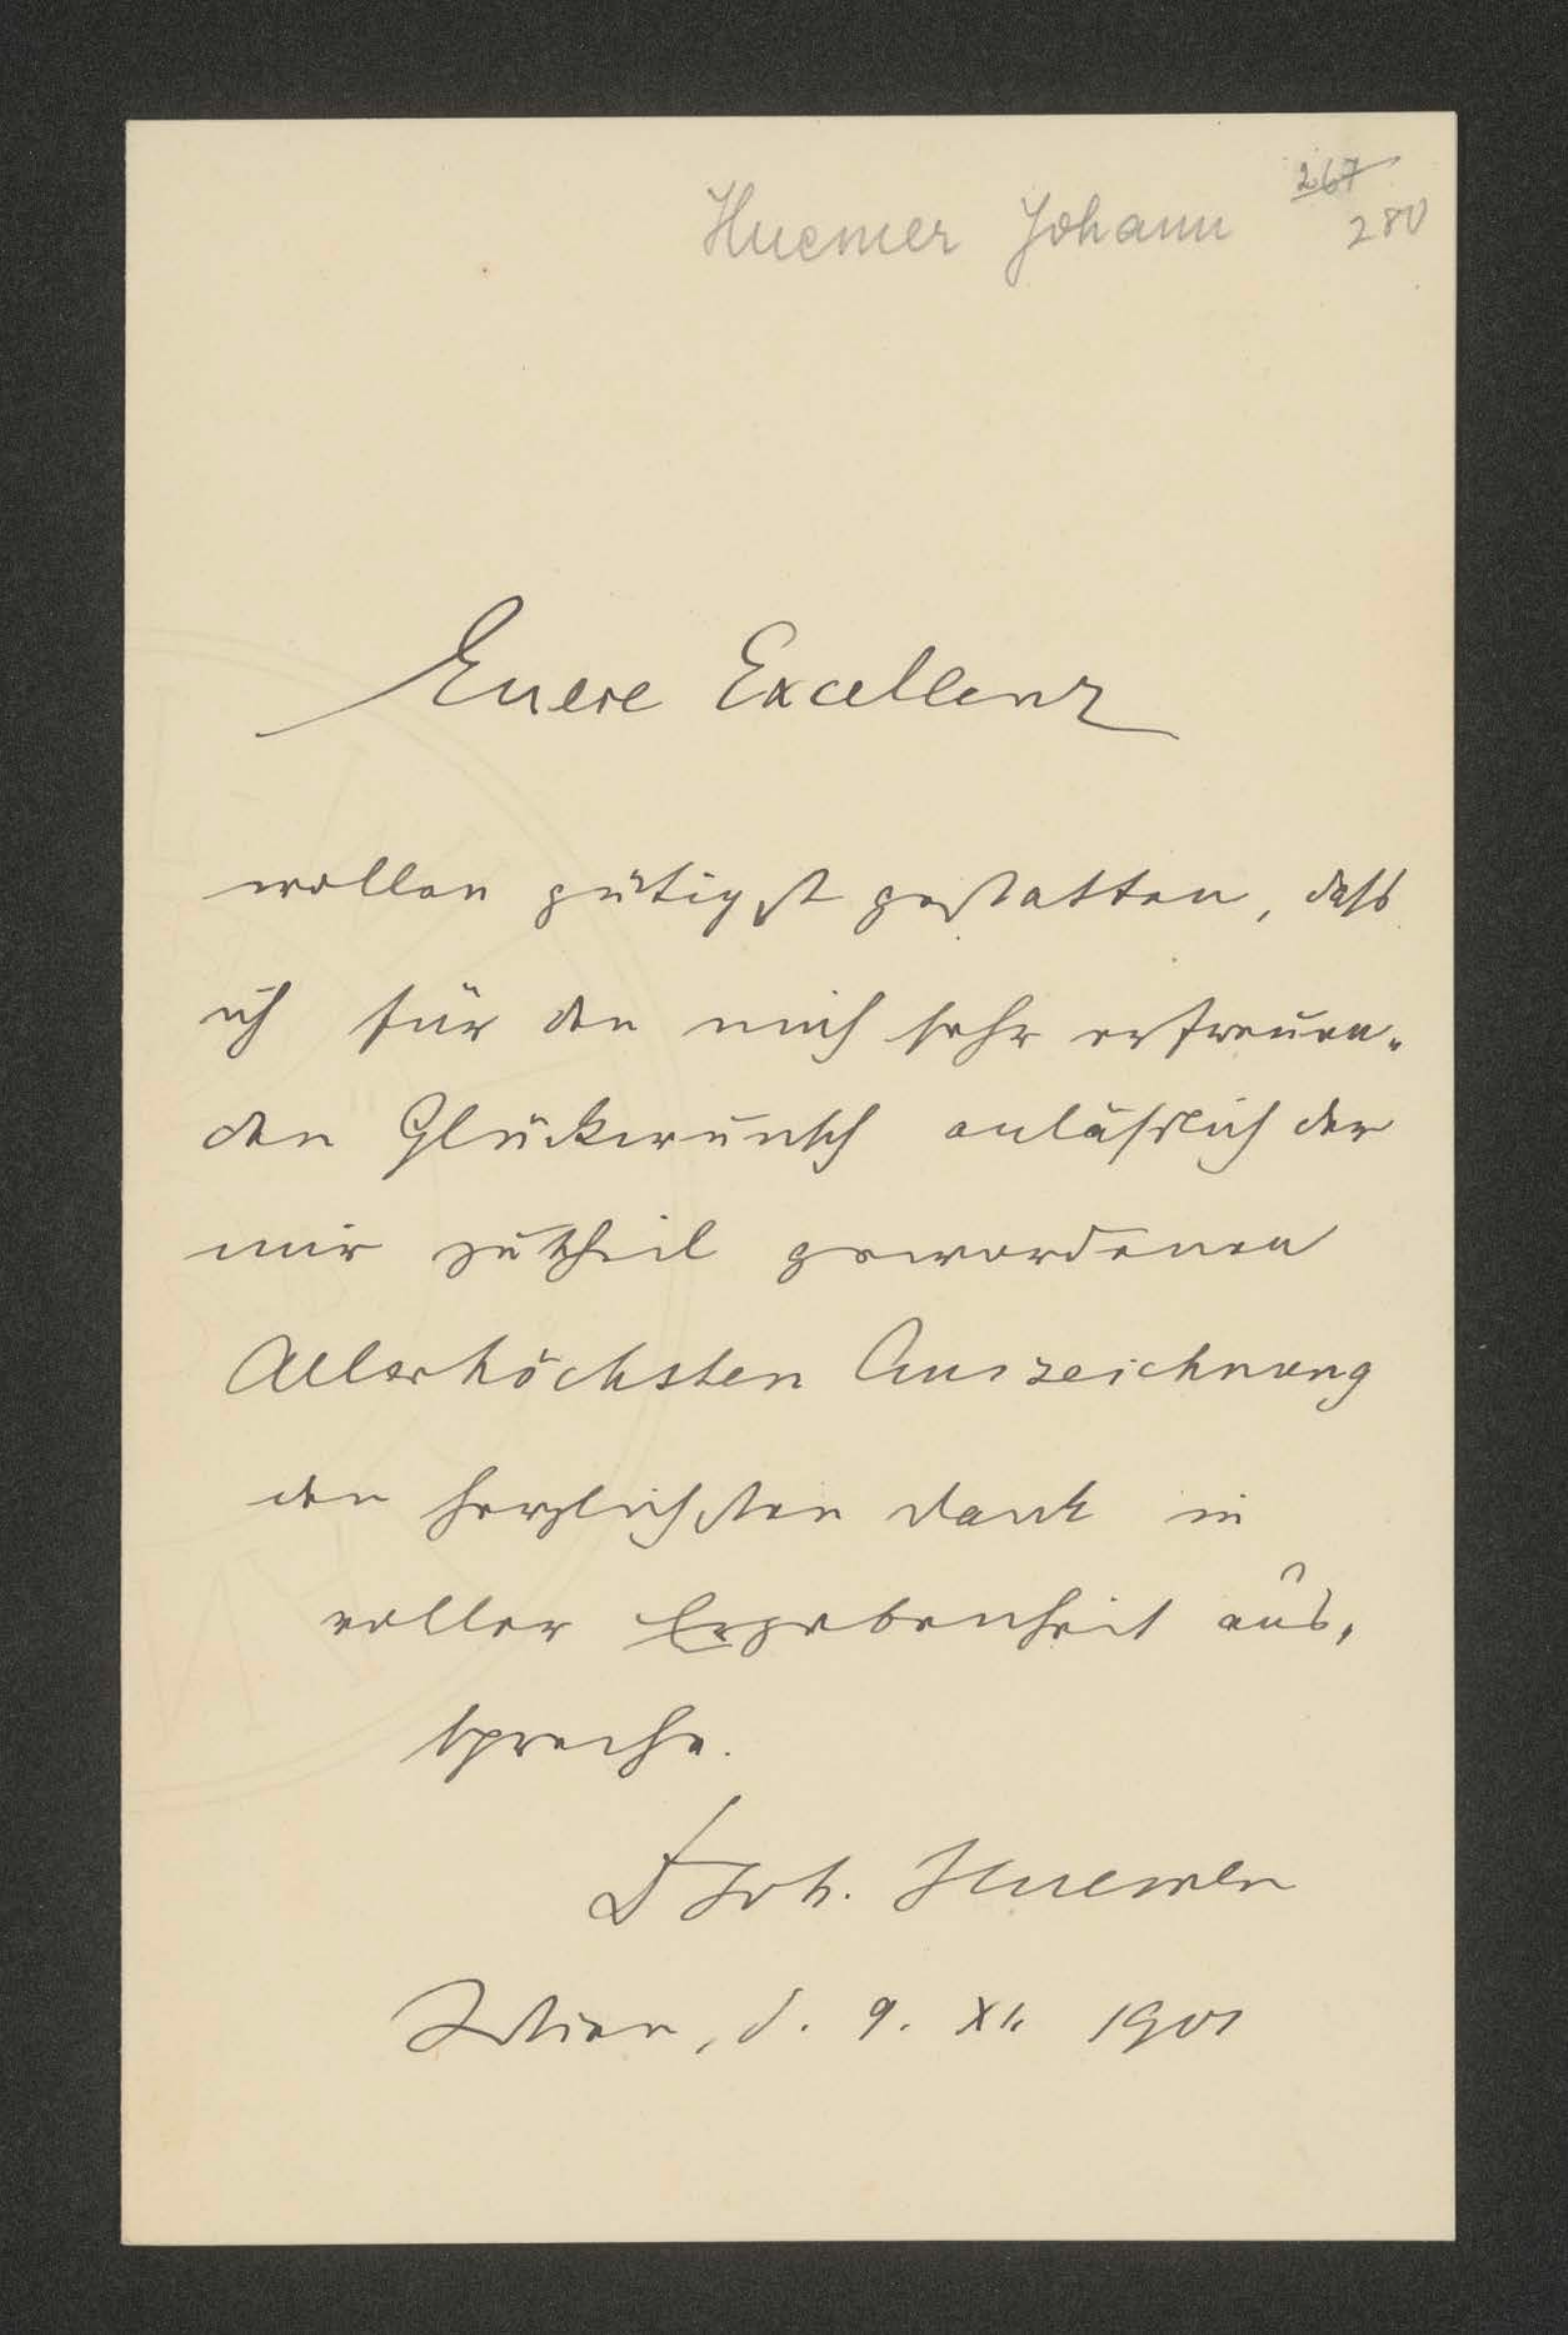 Huemer Johann
267
280
Euere Excellenz
wollen gütigst gestatten, dass
ich für den mich sehr erfreuen-
den Glückwunsch anlässlich der
mir zutheil gewordenen
Allerhöchsten Auszeichnung
den herzlichsten Dank in
voller Ergebenheit aus-
spreche.
Dr Joh. Huemer
Wien, d. 9. XII. 1901